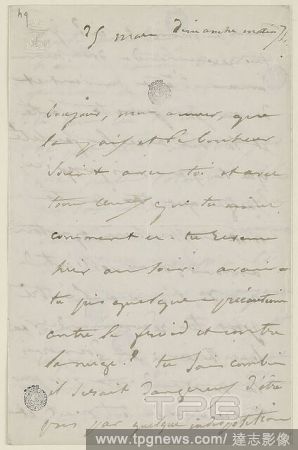 49
25 mars Dimanche matin
bonjour, mon amour, que
la paix et le bonheur
soient avec toi et avec
tous ceux que tu aimes.
comment es-tu revenu
hier au soir? avais-
tu pris quelque précaution
contre le froid et contre
la neige? tu sais combien
il serait dangereux d'être
pris par quelque indisposition
TPG
www.tpgnews.com / 達志影像